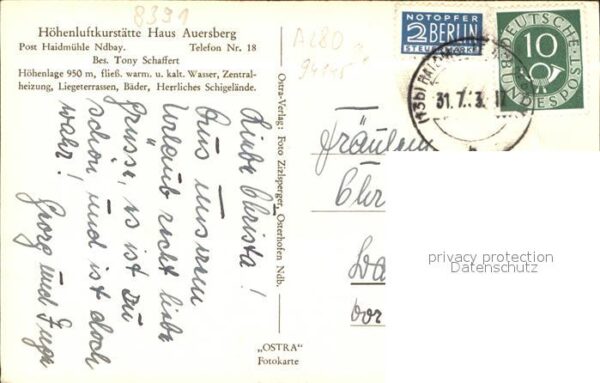 8391
Höhenluftkurstätte Haus Auersberg
Post Haidmühle Ndbay. Telefon Nr. 18
Bes. Tony Schaffert
Höhenlage 950 m, fließ. warm. u. kalt. Wasser, Zentral-
heizung, Liegeterrassen, Bäder, Herrliches Schigelände.
Liebe Christa!
Aus unserm
Urlaub recht liebe
Grüsse, es ist zu
schön und ist doch
wahr!
Georg und Inge
A280
Ostra-Verlag: Foto Zizlsperger, Osterhofen Ndb.
„OSTRA"
Fotokarte
NOTOPFER
2 BERLIN
STEUERMARKE
DEUTSCHE
BUNDESPOST
10
(13b)
31.7.
Fräulein
Chr
vor
privacy protection
Datenschutz